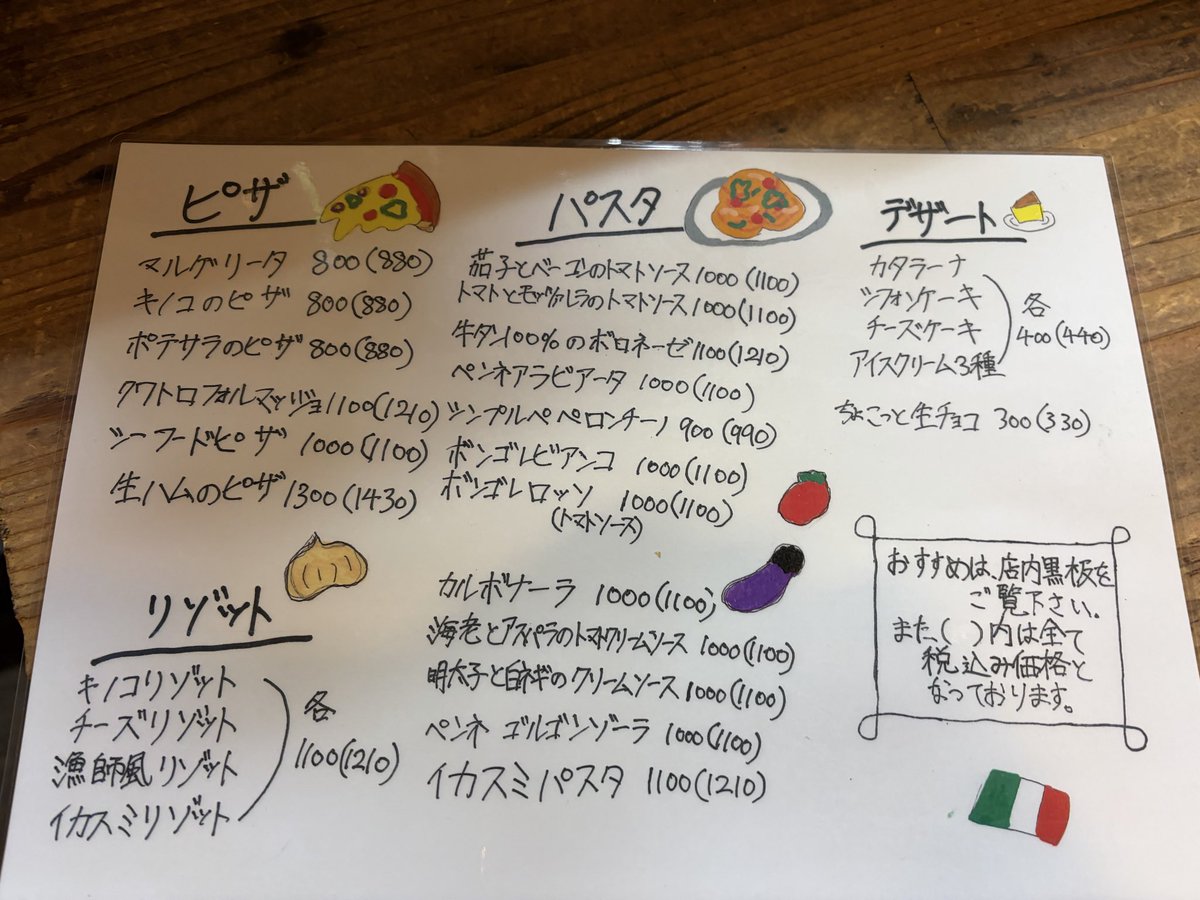 ピザ
マルゲリータ 800(880)
キノコのピザ 800(880)
ポテサラのピザ 800(880)
クワトロフォルマッジョ 1100(1210)
シーフードピザ 1000(1100)
生ハムのピザ 1300(1430)
リゾット
キノコリゾット
チーズリゾット
漁師風リゾット
イカスミリゾット
各
1100(1210)
パスタ
茄子とベーコンのトマトソース 1000(1100)
トマトとモッツァレラのトマトソース 1000(1100)
牛タン100%のボロネーゼ 1100(1210)
ペンネアラビアータ 1000(1100)
シンプルペペロンチーノ 900(990)
ボンゴレビアンコ 1000(1100)
ボンゴレロッソ 1000(1100)
(トマトソース)
カルボナーラ 1000(1100)
海老とアスパラのトマトクリームソース 1000(1100)
明太子と白ネギのクリームソース 1000(1100)
ペンネ ゴルゴンゾーラ 1000(1100)
イカスミパスタ 1100(1210)
デザート
カタラーナ
シフォンケーキ
チーズケーキ
アイスクリーム3種
各
400(440)
ちょこっと生チョコ 300(330)
おすすめは、店内黒板を
ご覧下さい。
また、( )内は全て
税込み価格と
なっております。